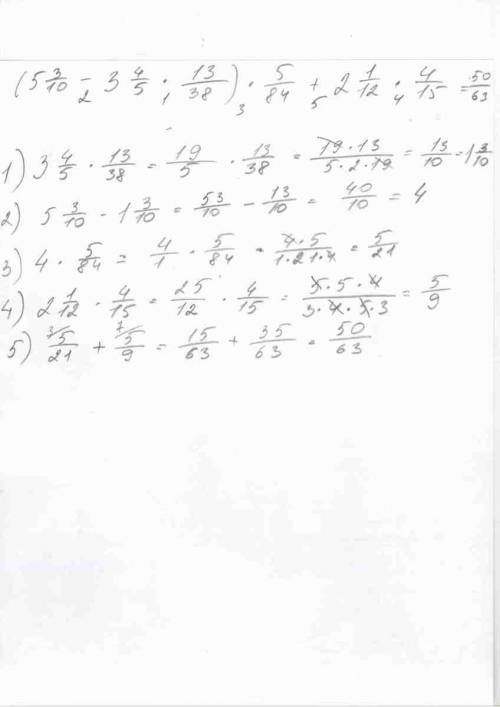 (5 3/10 - 3 4/5 · 13/38) · 5/84 + 2 1/12 · 4/15 = 50/63
2 1 3 5 4
1) 3 4/5 · 13/38 = 19/5 · 13/38 = 19·13/5·2·19 = 13/10 = 1 3/10
2) 5 3/10 - 1 3/10 = 53/10 - 13/10 = 40/10 = 4
3) 4 · 5/84 = 4/1 · 5/84 = 4·5/1·21·4 = 5/21
4) 2 1/12 · 4/15 = 25/12 · 4/15 = 5·5·4/3·4·5·3 = 5/9
5) 3/ 5/21 + 7/ 5/9 = 15/63 + 35/63 = 50/63